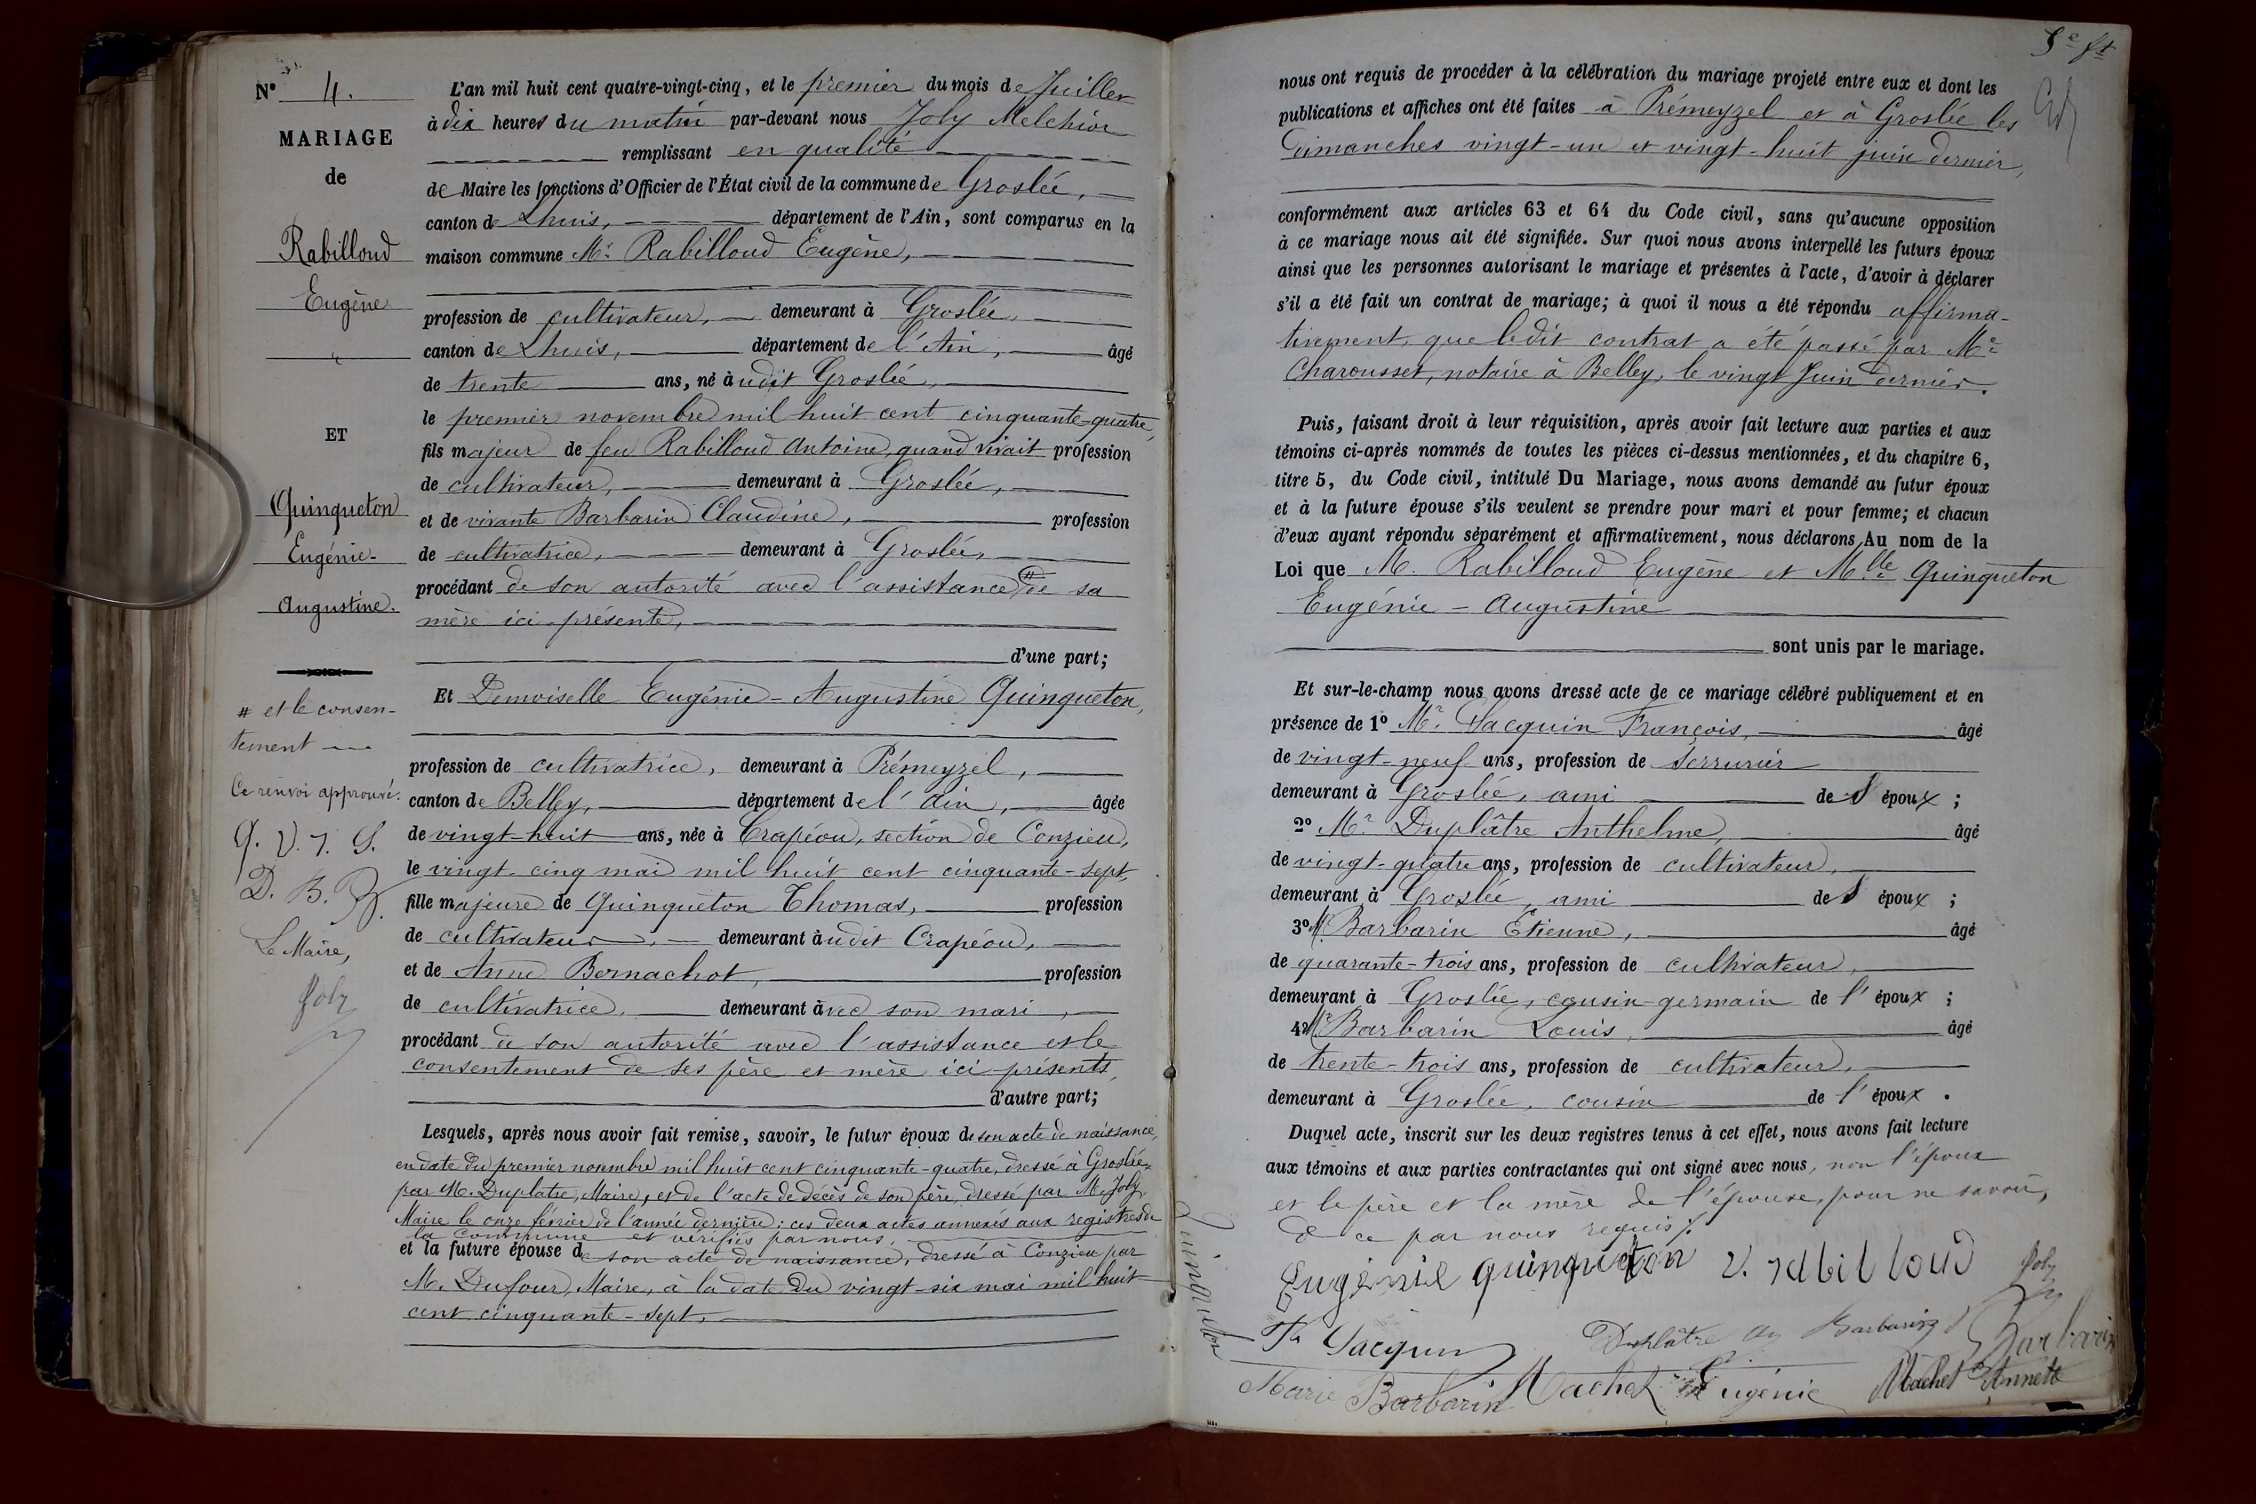 N° 4.
MARIAGE
de
Rabilloud
Eugène
"
ET
Quinqueton
Eugénie-
Augustine.
# et le consen-
tement
Ce renvoi approuvé.
Q. V. J. S.
D. B. B.
Le Maire,
Joly
L'an mil huit cent quatre-vingt-cinq, et le premier du mois de Juillet
à dix heures du matin par-devant nous Joly Melchior
remplissant en qualité
de Maire les fonctions d'Officier de l'État civil de la commune de Groslée,
canton de Lhuis, département de l'Ain, sont comparus en la
maison commune Mr Rabilloud Eugène,
profession de cultivateur, demeurant à Groslée,
canton de Lhuis, département de l'Ain, âgé
de trente ans, né à udit Groslée,
le premier novembre mil huit cent cinquante-quatre,
fils majeur de feu Rabilloud Antoine, quand vivait profession
de cultivateur, demeurant à Groslée,
et de vivante Barbarin Claudine, profession
de cultivatrice, demeurant à Groslée,
procédant de son autorité avec l'assistance # de sa
mère ici présente,
d'une part;
Et Demoiselle Eugénie-Augustine Quinqueton,
profession de cultivatrice, demeurant à Prémeyzel,
canton de Belley, département de l'Ain, âgée
de vingt-huit ans, née à Crapéou, section de Conzieu,
le vingt-cinq mai mil huit cent cinquante-sept,
fille majeure de Quinqueton Thomas, profession
de cultivateur, demeurant à udit Crapéou,
et de Anne Bernachot, profession
de cultivatrice, demeurant avec son mari,
procédant de son autorité avec l'assistance et le
consentement de ses père et mère ici présents,
d'autre part;
Lesquels, après nous avoir fait remise, savoir, le futur époux de son acte de naissance,
en date du premier novembre mil huit cent cinquante-quatre, dressé à Groslée
par M. Duplatre, Maire, et de l'acte de décès de son père, dressé par M. Joly,
Maire le onze février de l'année dernière; ces deux actes annexés aux registres de
la commune et vérifiés par nous,
et la future épouse de son acte de naissance, dressé à Conzieu par
M. Dufour, Maire, à la date du vingt-six mai mil huit
cent cinquante-sept,
5e ft
nous ont requis de procéder à la célébration du mariage projeté entre eux et dont les
publications et affiches ont été faites à Prémeyzel et à Groslée les
Dimanches vingt-un et vingt-huit juin dernier,
conformément aux articles 63 et 64 du Code civil, sans qu'aucune opposition
à ce mariage nous ait été signifiée. Sur quoi nous avons interpellé les futurs époux
ainsi que les personnes autorisant le mariage et présentes à l'acte, d'avoir à déclarer
s'il a été fait un contrat de mariage; à quoi il nous a été répondu affirma-
tivement, que ledit contrat a été passé par Me
Charousset, notaire à Belley, le vingt Juin dernier.
Puis, faisant droit à leur réquisition, après avoir fait lecture aux parties et aux
témoins ci-après nommés de toutes les pièces ci-dessus mentionnées, et du chapitre 6,
titre 5, du Code civil, intitulé Du Mariage, nous avons demandé au futur époux
et à la future épouse s'ils veulent se prendre pour mari et pour femme; et chacun
d'eux ayant répondu séparément et affirmativement, nous déclarons Au nom de la
Loi que M. Rabilloud Eugène et Mlle Quinqueton
Eugénie-Augustine
sont unis par le mariage.
Et sur-le-champ nous avons dressé acte de ce mariage célébré publiquement et en
présence de 1° Mr Sacquin François, âgé
de vingt-neuf ans, profession de serrurier
demeurant à Groslée, ami de l'époux;
2° Mr Duplâtre Anthelme, âgé
de vingt-quatre ans, profession de cultivateur,
demeurant à Groslée, ami de l'époux;
3° Mr Barbarin Etienne, âgé
de quarante-trois ans, profession de cultivateur,
demeurant à Groslée, cousin-germain de l'époux;
4° Mr Barbarin Louis, âgé
de trente-trois ans, profession de cultivateur,
demeurant à Groslée, cousin de l'époux.
Duquel acte, inscrit sur les deux registres tenus à cet effet, nous avons fait lecture
aux témoins et aux parties contractantes qui ont signé avec nous, non l'époux
et le père et la mère de l'épouse, pour ne savoir,
de ce par nous requis.
Eugénie quinqueton v. rabilloud Joly
Quinqueton
Fs Sacquin Duplâtre An Barbarin Barbarin
Marie Barbarin Machet Eugénie Machet Annette